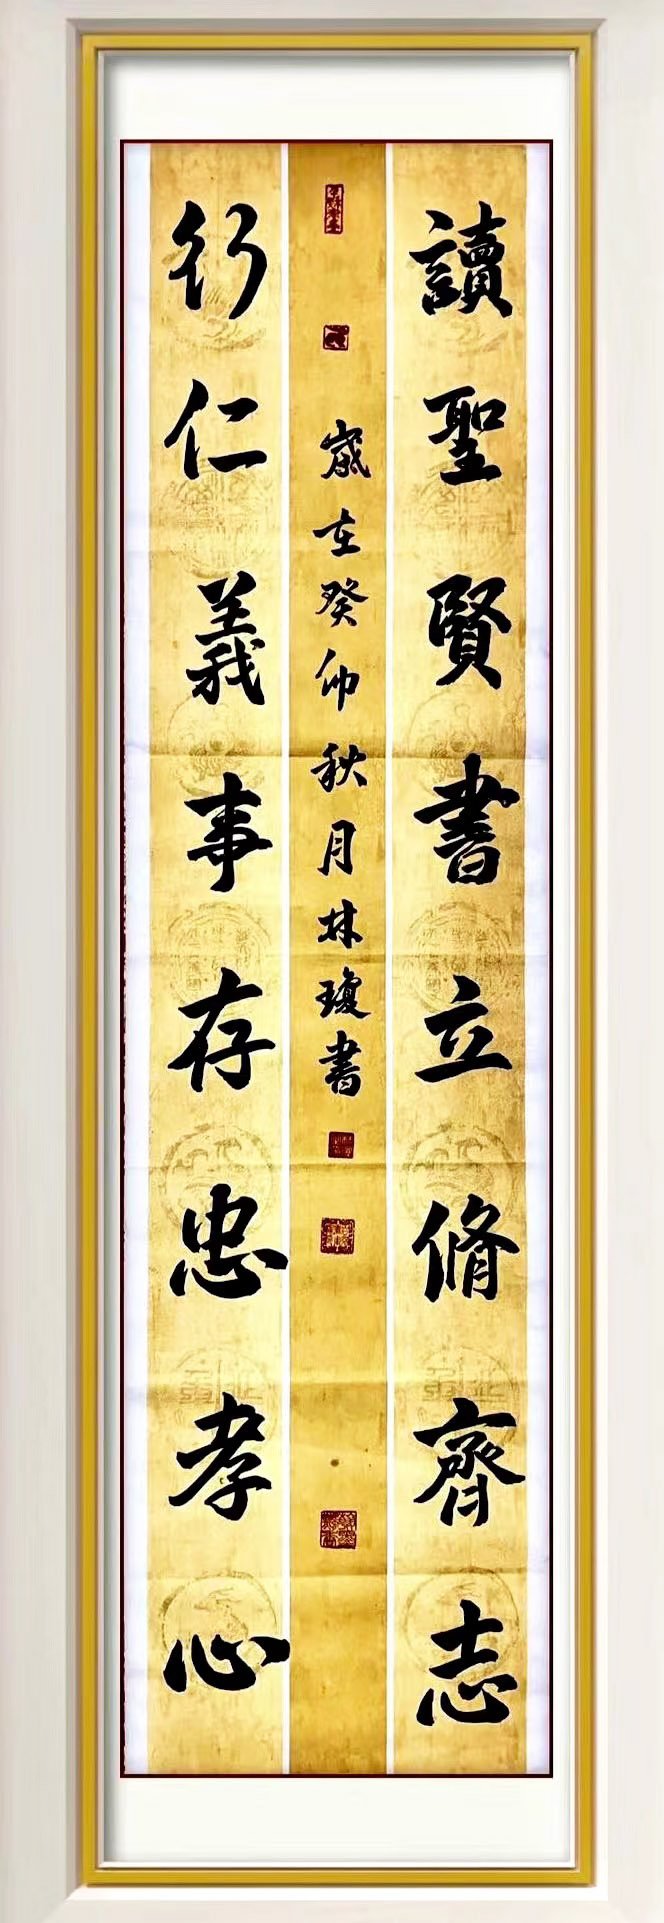 讀聖賢書立脩齊志
歲在癸卯秋月林瓊書
行仁義事存忠孝心